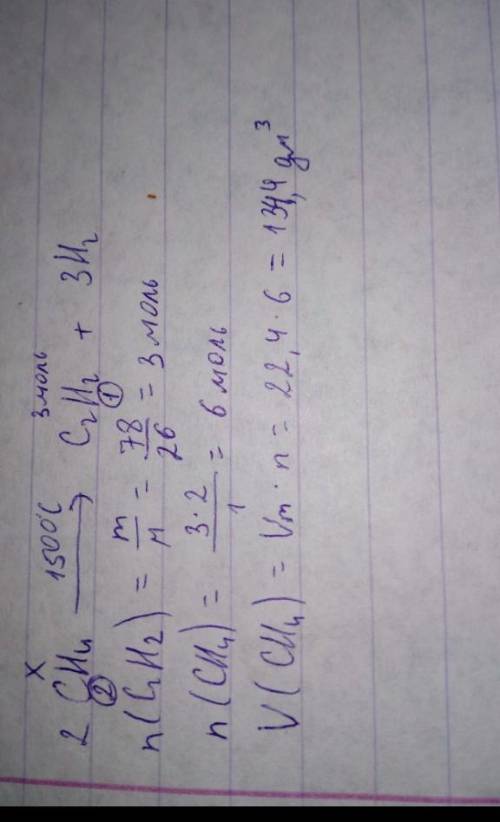 x 3 моль
2 CH₄ 1500°C → C₂H₂ + 3H₂
② ①
n(C₂H₂) = m/M = 78/26 = 3 моль
n(CH₄) = 3·2/1 = 6 моль
V(CH₄) = Vm · n = 22,4 · 6 = 134,4 дм³